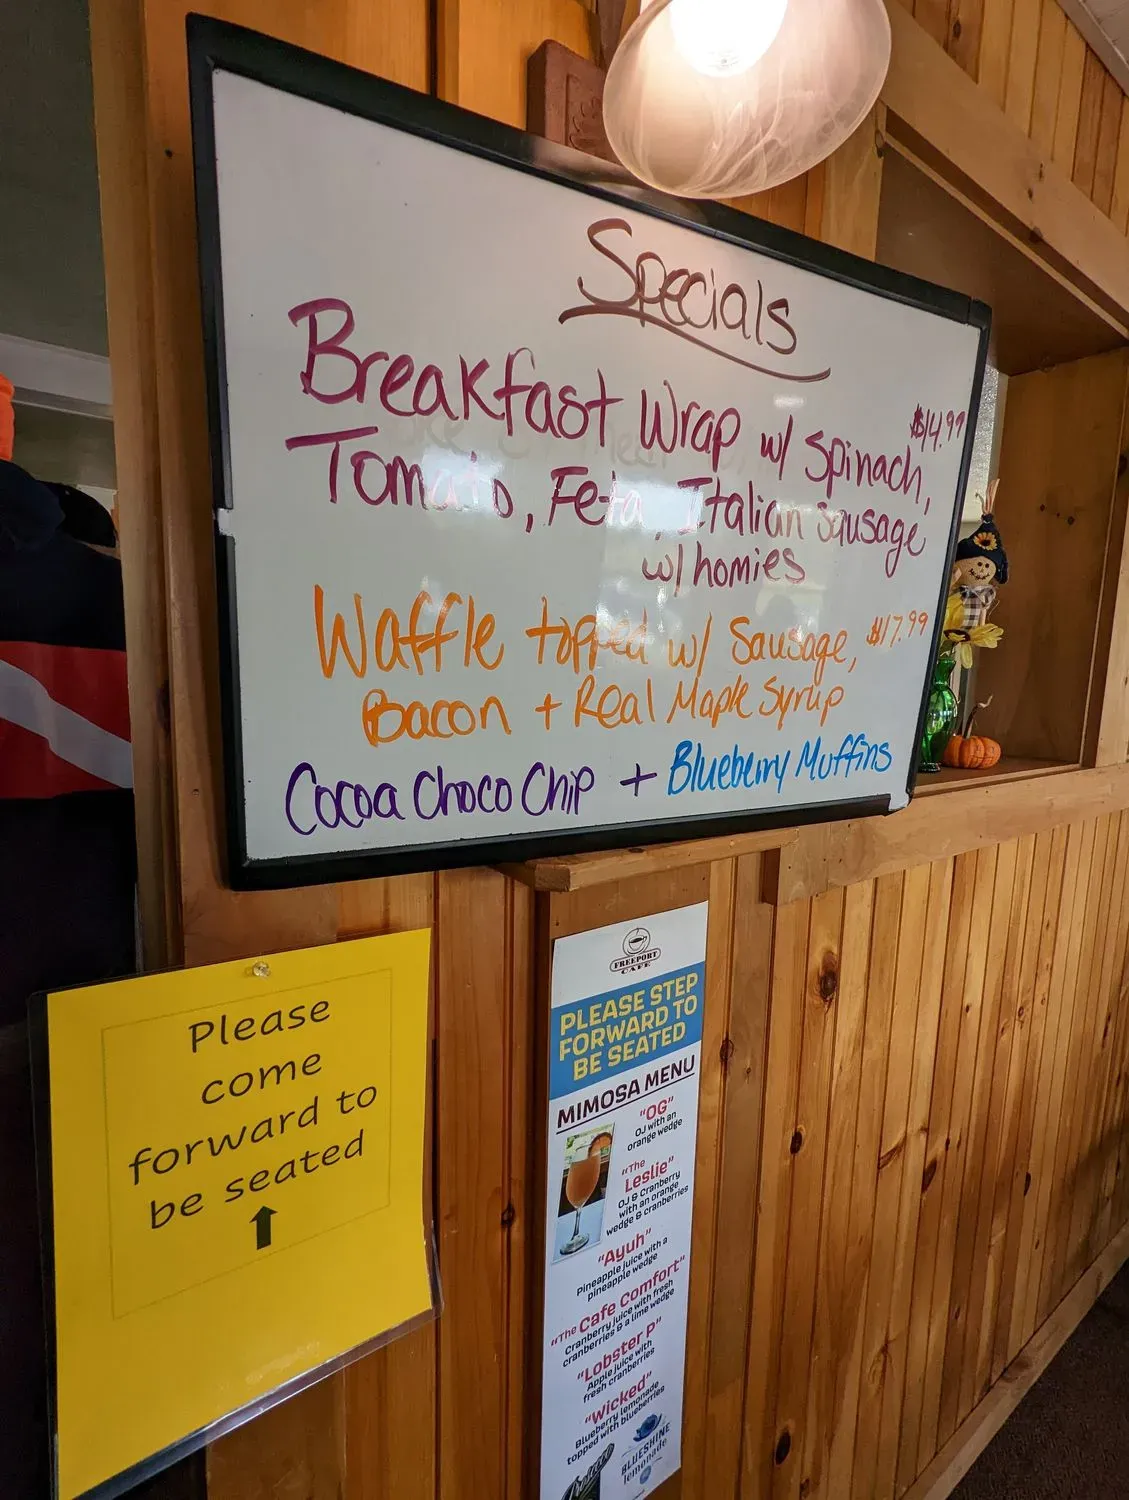 Specials
Breakfast Wrap w/ Spinach, $14.99
Tomato, Feta, Italian sausage
w/ homies
Waffle topped w/ Sausage, $17.99
Bacon + Real Maple Syrup
Cocoa Choco Chip + Blueberry Muffins
Please
come
forward to
be seated
FREEPORT
CAFE
PLEASE STEP
FORWARD TO
BE SEATED
MIMOSA MENU
"OG"
OJ with an
orange wedge
"The
Leslie"
OJ & Cranberry
with an orange
wedge & cranberries
"Ayuh"
Pineapple juice with a
pineapple wedge
"The Cafe Comfort"
Cranberry juice with fresh
cranberries & a lime wedge
"Lobster P"
Apple juice with
fresh cranberries
"Wicked"
Blueberry lemonade
topped with blueberries
BLUESHINE
lemonade